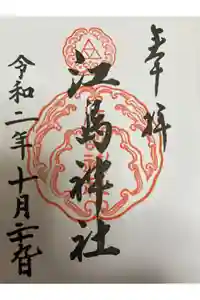 奉拝
江島神社
令和二年十月二十五日